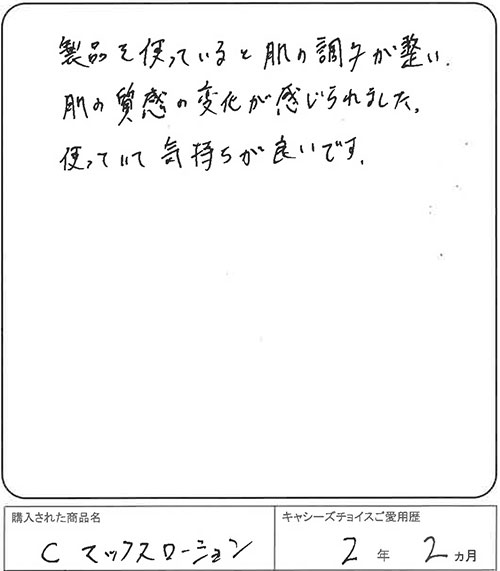 製品を使っていると肌の調子が整い、
肌の質感の変化が感じられました。
使っていて気持ちが良いです。
購入された商品名
C マックスローション
キャシーズチョイスご愛用歴
2年 2ヵ月